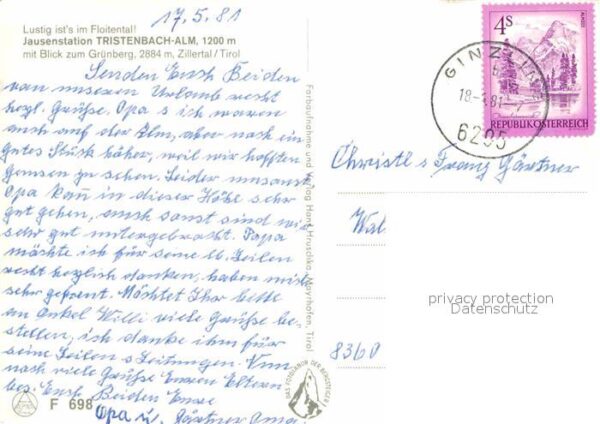 17.5.81
Lustig ist's im Floitental!
Jausenstation TRISTENBACH-ALM, 1200 m
mit Blick zum Grünberg, 2884 m, Zillertal/Tirol
Senden Euch Beiden
von unseren Urlaub recht
herzl. Grüße. Opa u ich waren
auch auf der Alm, aber noch ein
gutes Stück höher, weil wir hofften
Gemsen zu sehen. Leider umsonst
Opa kann in dieser Höhe sehr
gut gehen, auch sonst sind wir
sehr gut untergebracht. Papa
möchte ich für seine lb. Zeilen
recht herzlich danken, haben mich
sehr gefreut. Möchtet Ihr bitte
an Onkel Willi viele Grüße be-
stellen, ich danke ihm für
seine Zeilen u Zeitungen. Nun
noch viele Grüße Euren Eltern
bes. Euch Beiden Eure
Opa u. Gärtner Oma.
F 698
Farbaufnahme und Verlag Hans Hruschka, Mayrhofen, Tirol
DAS FOTOLABOR DER BERGSTEIGER
4S
REPUBLIK ÖSTERREICH
GINZLING
18-5.81
6295
Christl u Franz Gärtner
Wal
8360
privacy protection
Datenschutz